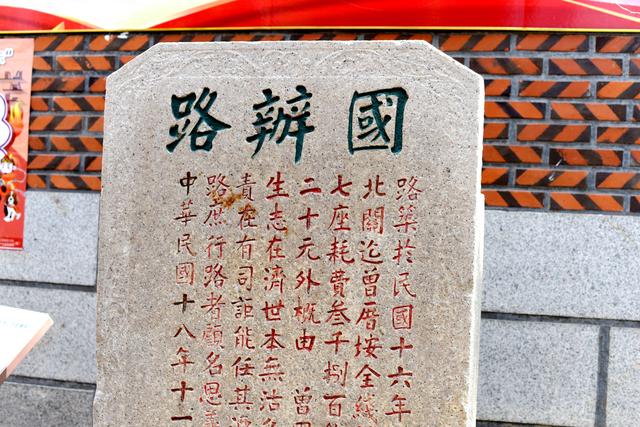 國辦路
路築於民國十六年
北關迄曾厝垵全綫
七座耗費叁千捌百
二十元外概由 曾
生志在濟世本無沽名
責在有司詎能任其湮
路庶行路者顧名思義
中華民國十八年十一